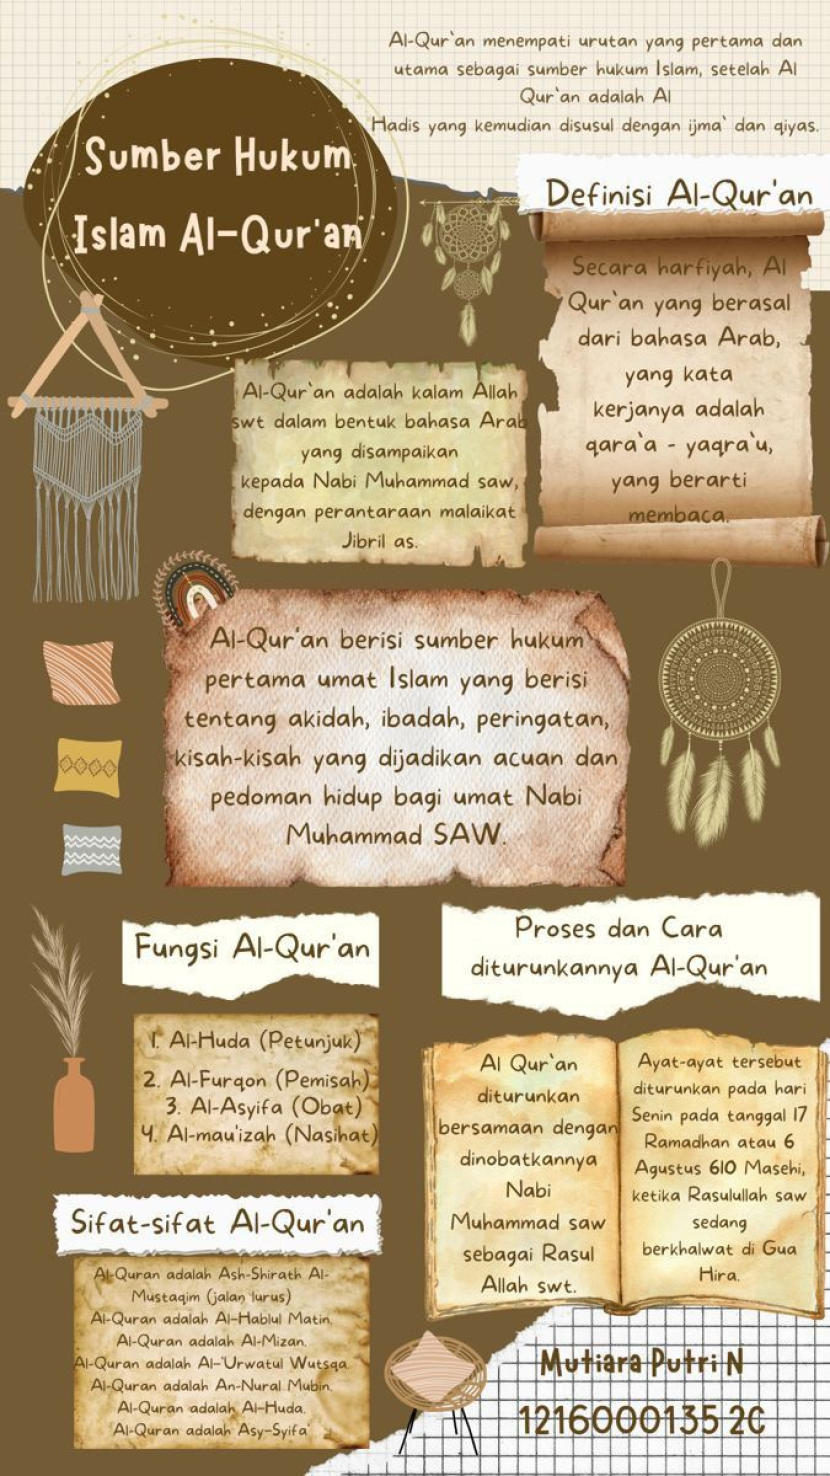 Al-Qur`an menempati urutan yang pertama dan
utama sebagai sumber hukum Islam, setelah Al
Qur`an adalah Al
Hadis yang kemudian disusul dengan ijma` dan qiyas.
Sumber Hukum
Islam Al-Qur'an
Definisi Al-Qur'an
Secara harfiyah, Al
Qur`an yang berasal
dari bahasa Arab,
yang kata
kerjanya adalah
qara`a - yaqra`u,
yang berarti
membaca.
Al-Qur`an adalah kalam Allah
swt dalam bentuk bahasa Arab
yang disampaikan
kepada Nabi Muhammad saw,
dengan perantaraan malaikat
Jibril as.
Al-Qur'an berisi sumber hukum
pertama umat Islam yang berisi
tentang akidah, ibadah, peringatan,
kisah-kisah yang dijadikan acuan dan
pedoman hidup bagi umat Nabi
Muhammad SAW.
Fungsi Al-Qur'an
1. Al-Huda (Petunjuk)
2. Al-Furqon (Pemisah)
3. Al-Asyifa (Obat)
4. Al-mau'izah (Nasihat)
Proses dan Cara
diturunkannya Al-Qur'an
Al Qur`an
diturunkan
bersamaan dengan
dinobatkannya
Nabi
Muhammad saw
sebagai Rasul
Allah swt.
Ayat-ayat tersebut
diturunkan pada hari
Senin pada tanggal 17
Ramadhan atau 6
Agustus 610 Masehi,
ketika Rasulullah saw
sedang
berkhalwat di Gua
Hira.
Sifat-sifat Al-Qur'an
Al-Quran adalah Ash-Shirath Al-
Mustaqim (jalan lurus)
Al-Quran adalah Al-Hablul Matin.
Al-Quran adalah Al-Mizan.
Al-Quran adalah Al-'Urwatul Wutsqa.
Al-Quran adalah An-Nural Mubin.
Al-Quran adalah Al-Huda.
Al-Quran adalah Asy-Syifa'
Mutiara Putri N
1216000135 2C